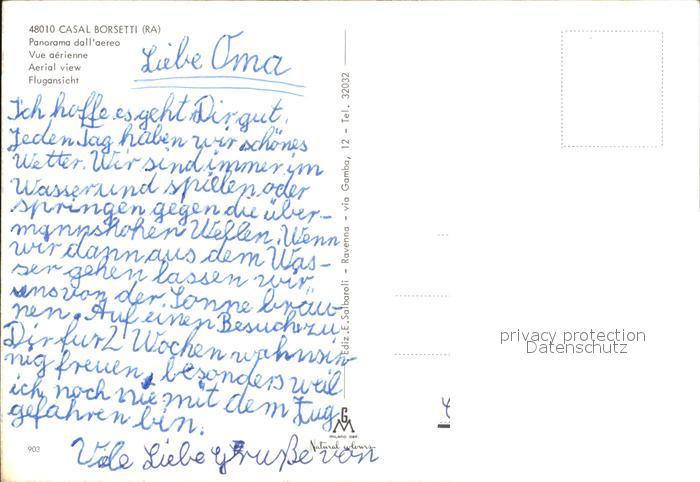 48010 CASAL BORSETTI (RA)
Panorama dall'aereo
Vue aérienne
Aerial view
Flugansicht
Liebe Oma
Ich hoffe es geht Dir gut.
Jeden Tag haben wir schönes
Wetter. Wir sind immer im
Wasser und spielen oder
springen gegen die über-
mannshohen Wellen. Wenn
wir dann aus dem Was-
ser gehen lassen wir
uns von der Sonne bräu-
nen. Auf einen Besuch zu
Dir für 2 Wochen wahnsin-
nig freuen, besonders weil
ich noch nie mit dem Zug
gefahren bin.
Viele Liebe Grüße von
903
Ediz. E. Salbaroli - Ravenna - via Gamba, 12 - Tel. 32032
GM
Natural colours
privacy protection
Datenschutz